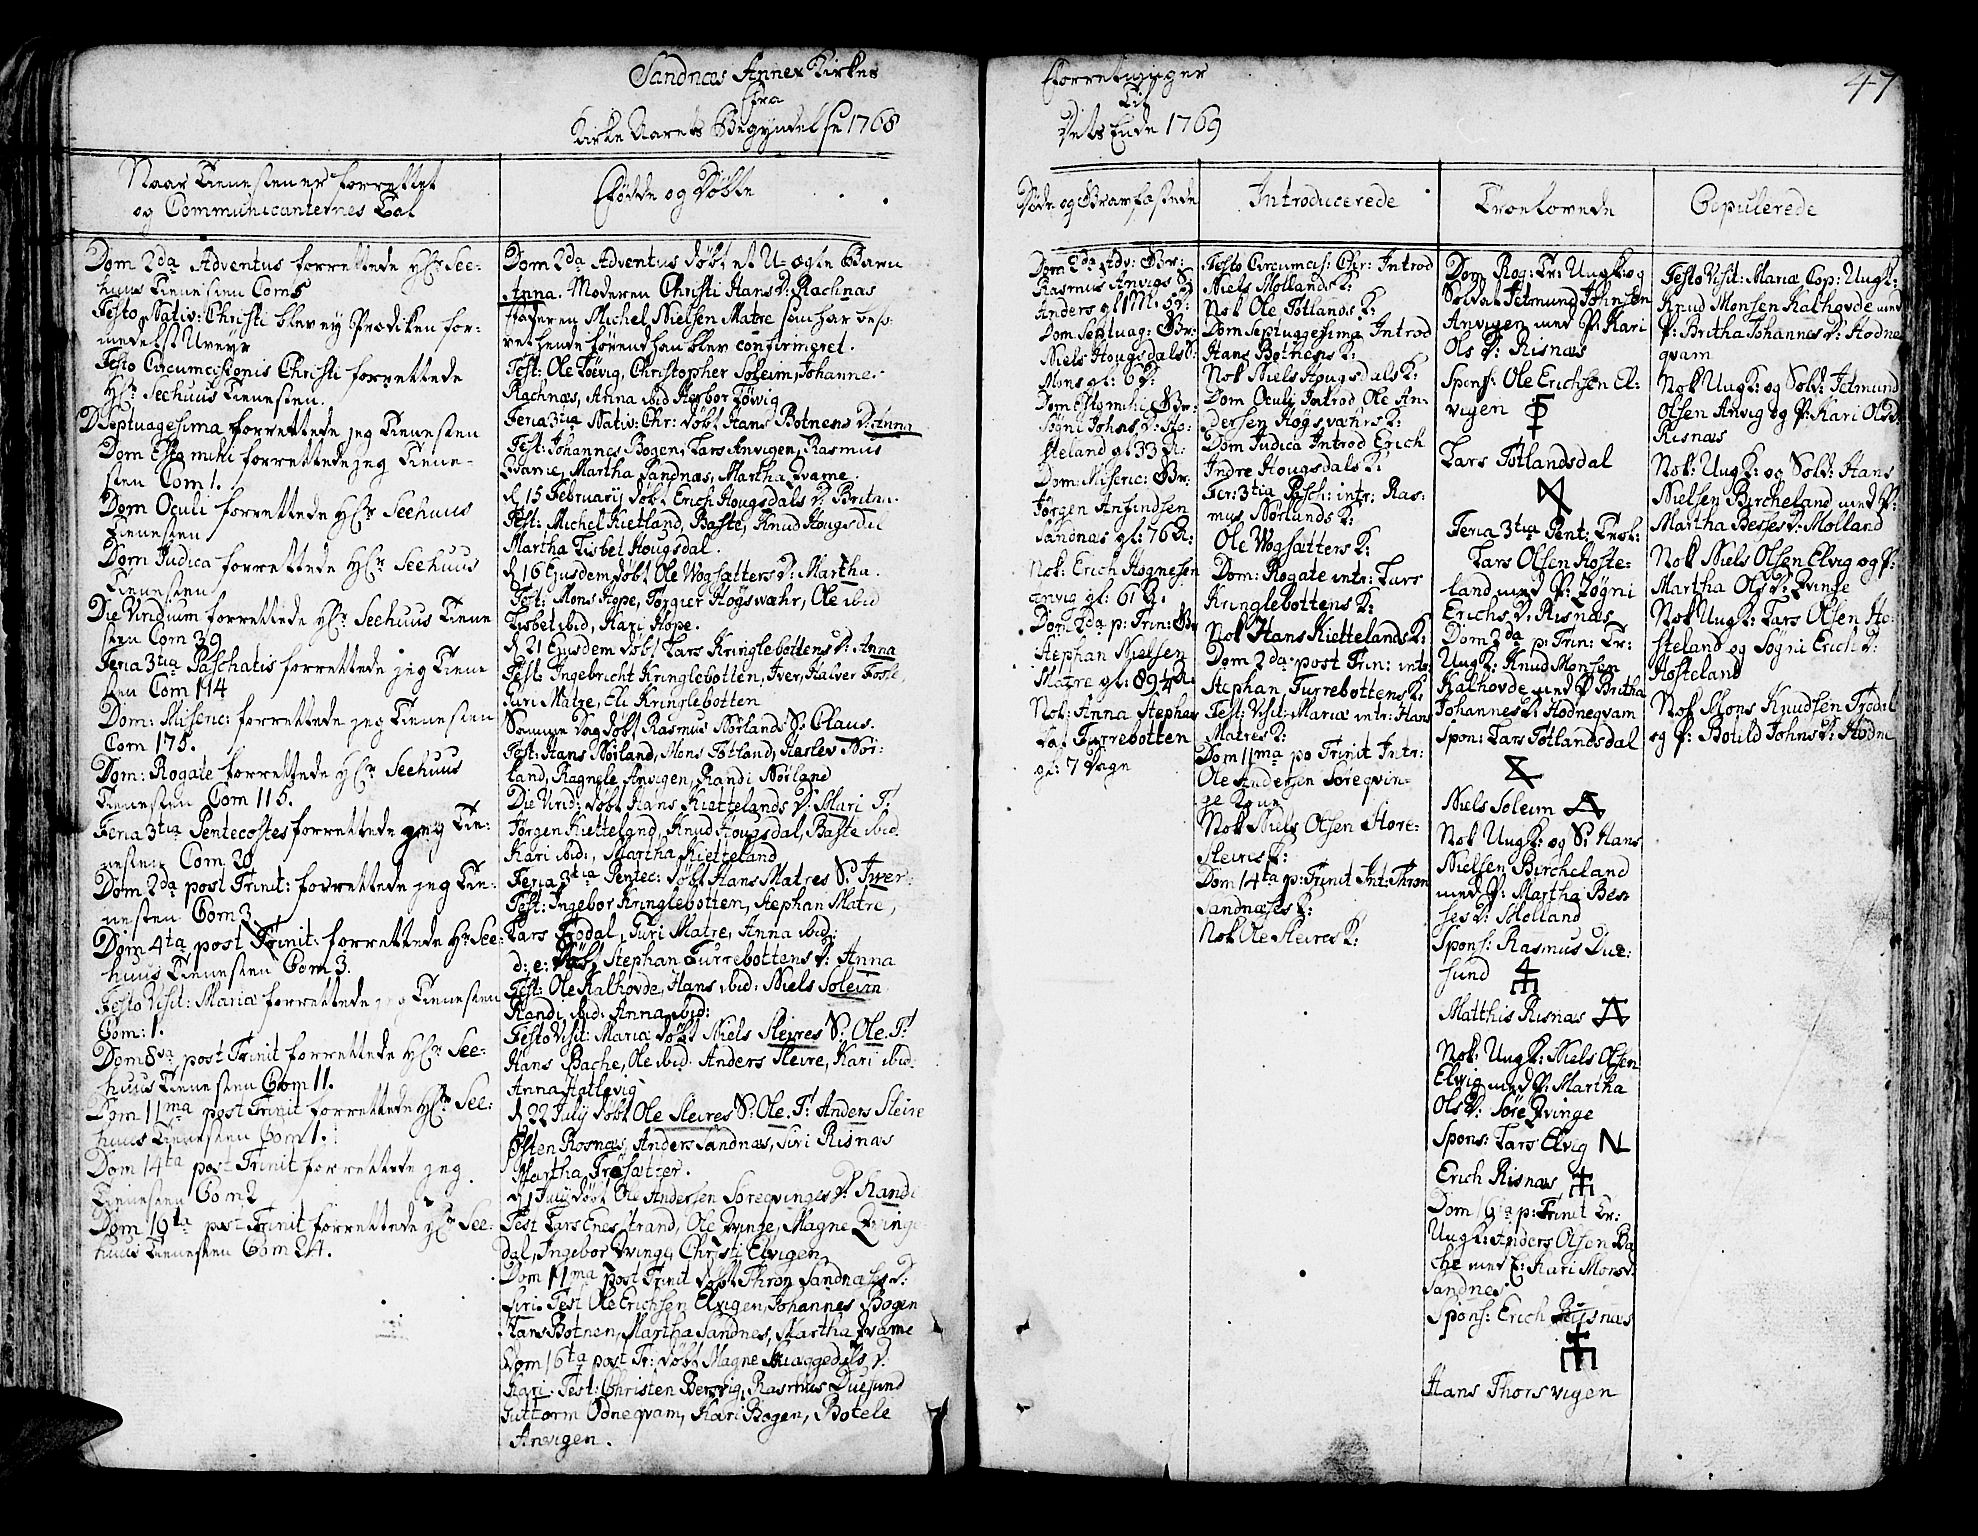 Sandnæs Annex Kirkes
fra
Kirke Aarets Begyndelse 1768
Naar Tienesten er forrettet
og Communicanternes Tal
Dom 2da Adventus forrettede Hr See:
huus Tienesten Com 5
Festo Nativ: Christi blev ey Prædiken for-
medelst Uveyr
Festo Circumcisionis Christi forrettede
Hr Seehuus Tienesten.
D Septuagesima forrettede jeg Tienesten
Dom Esto mihi forrettede jeg Tiene-
sten Com 1.
Dom Oculi forrettede Hr Seehuus
Tienesten
Dom Judica forrettede Hr Seehuus
Tienesten
Die Viridium forrettede Hr Seehuus Tiene
sten Com 39
Feria 3tia Paschatis forrettede jeg Tiene
sten Com 114
Dom: Miseric: forrettede jeg Tienesten
Com 175.
Dom: Rogate forrettede Hr Seehuus
Tienesten Com 115.
Feria 3tia Pentecostes forrettede jeg Tie:
nesten Com 20
Dom 2da post Trinit: forrettede jeg Tie-
nesten Com 3
Dom 4ta post Trinit: forrettede Hr See:
huus Tienesten Com 3.
Festo Visit: Mariæ forrettede jeg Tienesten
Com: 1.
Dom 8va post Trinit forrettede Hr See:
huus Tienesten Com 11.
Dom 11ma post Trinit forrettede Hr See:
huus Tienesten Com 1.
Dom 14ta post Trinit forrettede jeg
Tienesten Com 2
Dom 19ta post Trinit forrettede Hr See:
huus Tienesten Com 24.
Fødde og Døbte
Dom 2da Adventus døbt et U-ægte Barn
Anna. Moderen Christi Hans D: Rachnæs
Faderen Michel Nielsen Matre som har beso
vet hende førend han blev confirmeret.
Test: Ole Løevig, Christopher Soleim, Johanne
Rachnæs, Anna ibid Herbor Løvig
Feria 3tia Nativ: Chr: døbt Hans Botnens D: Anna
Test: Johannes Bogen, Lars Anvigen, Rasmus
Qvame, Martha Sandnæs, Martha Qvame.
d 15 Februarij døbt Erich Hougsdals D: Britha.
Test: Michel Kietland, Baste, Knud Hougsdal
Martha Lisbet Hougsdal.
d 16 Ejusdem døbt Ole Wogsætters D: Martha.
Test: Mons Hope, Torgier Høgswæhr, Ole ibid
Lisbet ibid, Kari Hope.
d 21 Ejusdem døbt Lars Kringlebottens D: Anna
Test: Ingebricht Kringlebotten, Iver, Halver Fosse,
Guri Matre, Eli Kringlebotten
Samme Dag døbt Rasmus Nørlands S: Claus.
Test: Hans Nørland, Mons Totland, Haslev Nør:
land, Ragnele Anvigen, Randi Nørland
Die Virid: døbt Hans Kiettelands D: Mari T:
Jørgen Kietteland, Knud Hougsdal, Baste ibid.
Kari ibid:, Martha Kietteland
Feria 3tia Pentec: døbt Hans Matres S: Iver
Test: Ingebor Kringlebotten, Stephan Matre,
Lars Trodal, Guri Matre, Anna ibid:
d: e: Døb, Stephan Furrebottens D: Anna
Test: Ole Kalhovde, Hans ibid: Niels Soleim
Randi ibid: Anna ibid:
Festo Visit: Mariæ døbt Niels Sleires S: Ole. T:
Hans Bache, Ole ibid. Anders Sleire, Kari ibid.
Anna Hatlevig
d 22 July døbt Ole Sleires S: Ole. T: Anders Sleire
Østen Rosnæs, Anders Sandnæs, Siri Risnæs
Martha Træsætter.
d 1 July døbt Ole Andersen Søreqvinges D: Randi
Test Lars Enestrand, Ole Qvinge, Magne Qvinge
dal, Ingebor Qvinge, Christi Elvigen
Dom 11ma post Trinit døbt Thron Sandnæses D:
Siri. Test Ole Erichsen Elvigen, Johannes Bogen
Hans Botnen, Martha Sandnes, Martha Qvame
Dom 16ta post Tr: døbt Magne Skaggedals D:
Kari. Test: Christen Bersvig, Rasmus Duesund
Guttorm Odneqvam, Kari Bogen, Botele
Anvigen.
Forretninger
Til
Dets Ende 1769
47
Døde og Gravfæstede
Dom 2da Adv: Gr:
Rasmus Anvigs S
Anders gl. M. 5 D:
Dom Septuag: Gr:
Niels Hougsdals S:
Mons gl: 6 D:
Dom Esto mihi Gr:
Søgni Johns D: Ho:
steland gl 33 A:
Dom: Miseric: Gr:
Jørgen Anfindsen
Sandnæs gl: 76 A:
Nok: Erich Hognesen
Anvig gl: 61 A.
Dom 2da p: Trin: Gr
Stephan Nielsen
Matre gl: 89¼ A:
Nok: Anna Stephans
Dat Furrebotten
gl: 7 Dage
Introducerede
Festo Circumcis: Chr: Introd
Niels Mollands K:
Nok Ole Totlands K:
Dom Septuggessima Introd
Hans Botnens K:
Nok Niels Hougsdals K:
Dom Oculi Introd Ole An-
dersen Høgsvæhrs K:
Dom Judica Introd Erich
Indre Hougsdals K:
Fer: 3tia Pasch: intr: Ras-
mus Nørlands K:
Ole Wogsætters K:
Dom: Rogate intr: Lars
Kringlebottens K:
Nok Hans Kiettelands K:
Dom 2da post Trin: intr:
Stephan Furrebottens K:
Fest: Visit: Mariæ intr: Hans
Matres K:
Dom 11ma po Trinit Intr:
Ole Andersen Søreqvin-
ge Kone
Nok Niels Olsen Store-
Sleires K:
Dom 14ta p: Trinit Int: Thron
Sandnæses K:
Nok Ole Sleires K:
Troelovede
Dom Rog: Tr: Ungk: og
Soldat Jetmund Johnsen
Anvigen med P: Kari
Ols D: Risnæs
Spons: Ole Erichsen El:
vigen
Lars Totlandsdal
Feria 3tia Pent: Trol:
Lars Olsen Hoste-
land med P: Søgni
Erichs D: Risnæs
Dom 3da p: Trin: Tr:
Ungk: Knud Monsen
Kalhovde med P Britha
Johannes D: Hodneqvam
Spon: Lars Totlandsdal
Niels Soleim
Nok Ungk: og S: Hans
Nielsen Bircheland
med P: Martha Bes-
ses D: Molland
Spons: Rasmus Due:
sund
Matthis Risnæs
Nok: Ungk: Niels Olsen
Elvig med P: Martha
Ols D: Søre Qvinge
Spons: Lars Elvig
Erich Risnæs
Dom 16ta p: Trinit Tr:
Ungk: Anders Olsen Ba
che med E: Kari Mons D:
Sandnes
Spons: Erich Riisnæs
Hans Thorsvigen
Copulerede
Festo Visit: Mariæ Cop: Ungk:
Knud Monsen Kalhovde med
P: Britha Johannes D: Hodne
qvam
Nok Ungk: og Sold: Jetmund
Olsen Anvig og P: Kari Ols D:
Risnæs
Nok: Ungk: og Sold: Hans
Nielsen Bircheland med P:
Martha Besses D: Molland
Nok Niels Olsen Elvig og P:
Martha Ols D: Qvinge
Nok Ungk: Lars Olsen Ho:
steland og Søgni Erichs D:
Hosteland
Nok Mons Knudsen Trodal
og P: Botild Johns D: Hodne